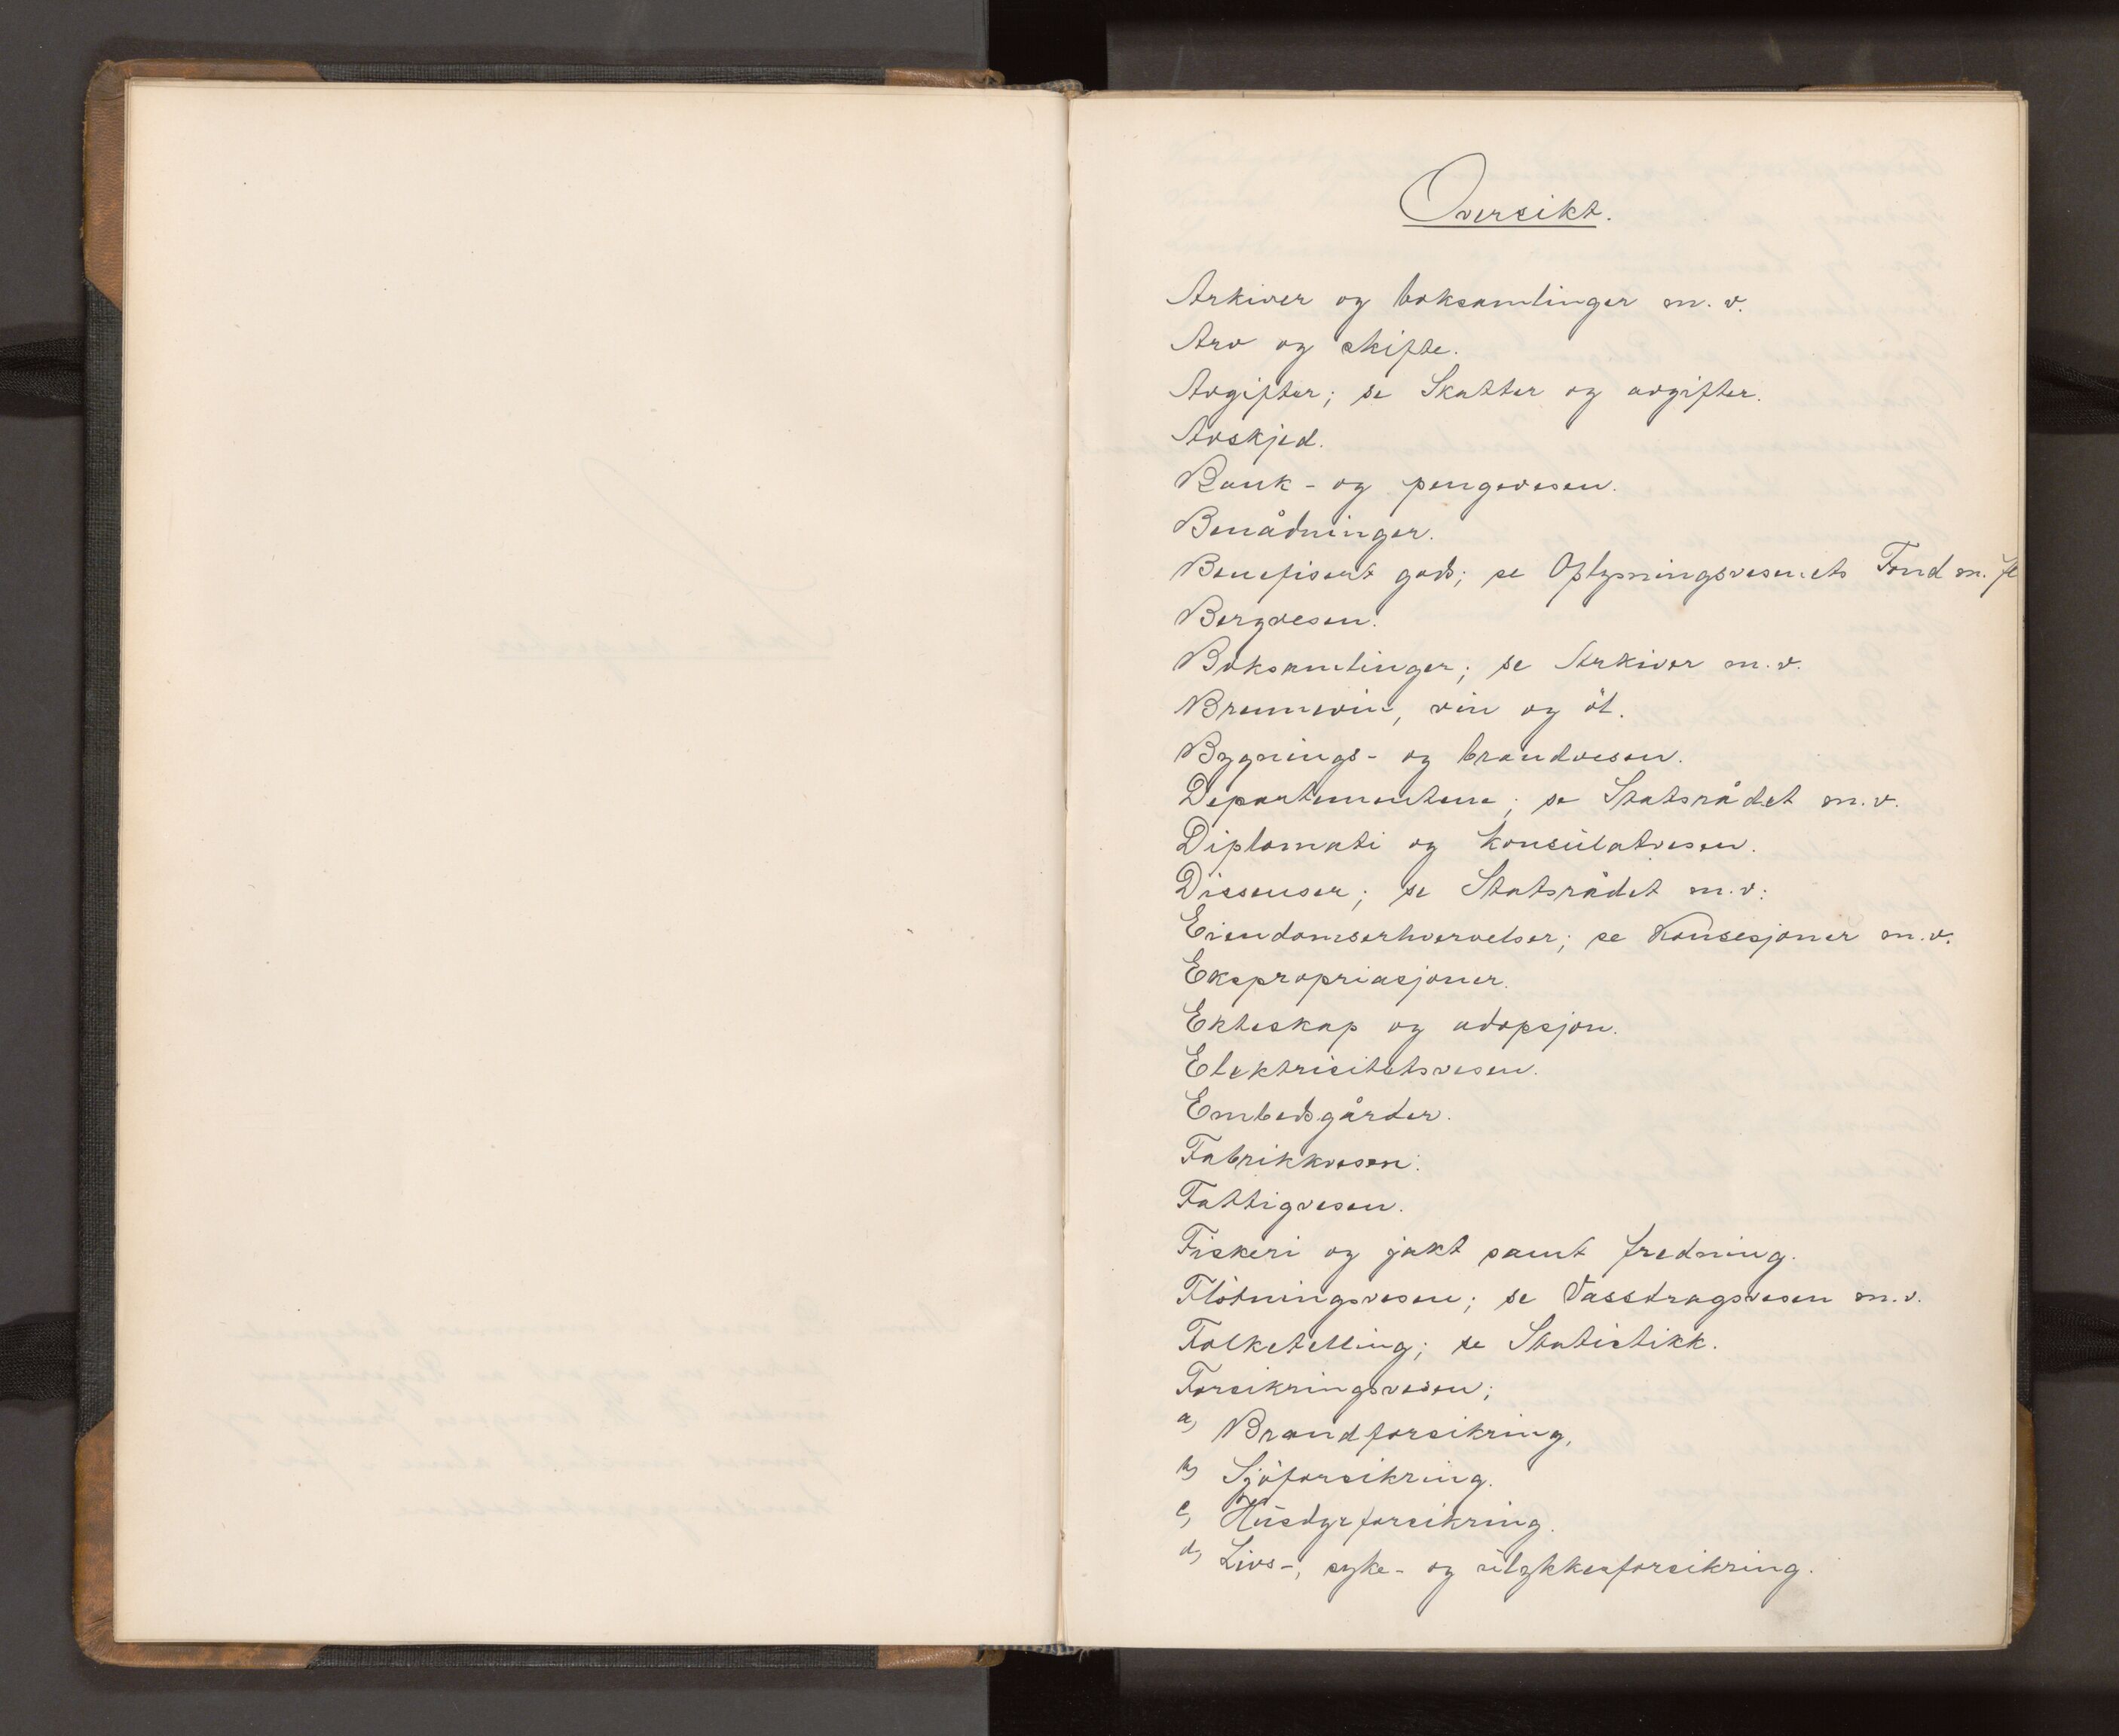 Oversikt.
Arkiver og boksamlinger m. v.
Arv og skifte.
Avgifter; se Skatter og avgifter.
Avskjed.
Bank- og pengevesen.
Benådninger.
Benefisert gods; se Oplysningsvesenets Fond m. fl
Bergvesen.
Boksamlinger; se Arkiver m. v.
Brennevin, vin og öl.
Bygnings- og brandvesen.
Departementene; se Statsrådet m. v.
Diplomati og konsulatvesen.
Dissenser; se Statsrådet m. v.
Eiendomserhvervelser; se Konsesjoner m. v.
Ekspropriasjoner.
Ekteskap og adopsjon.
Elektrisitetsvesen.
Embedsgårder.
Fabrikkvesen.
Fattigvesen.
Fiskeri og jakt samt fredning.
Flötningsvesen; se Vassdragsvesen m. v.
Folketelling; se Statistikk.
Forsikringsvesen;
a) Brandforsikring,
b) Sjöforsikring.
c) Husdyrforsikring.
d) Livs-, syke- og ulykkesforsikring.